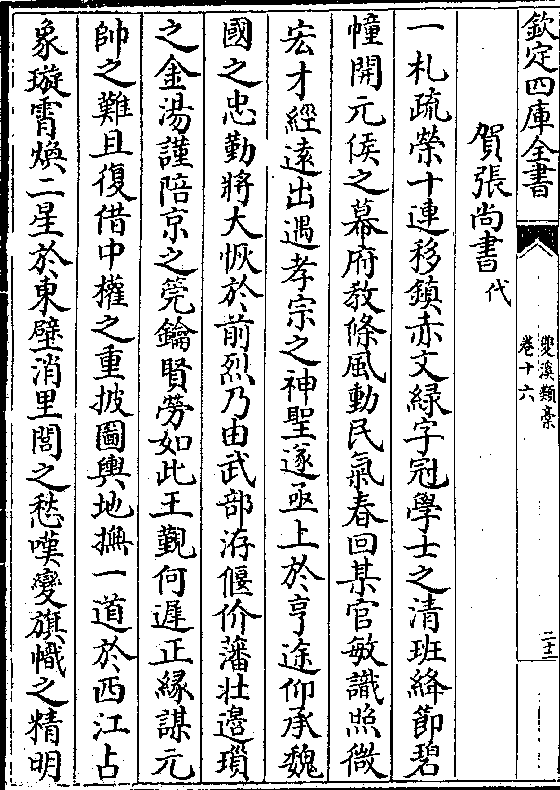 欽定四庫全書
燮溪類稾
卷十六
二十二
賀張尚書代
一札疏榮十連移鎮赤文緑字冠學士之清班絳節碧
幢開元侯之幕府教條風動民氣春回某官敏識照微
宏才經遠出遇孝宗之神聖遂亟上於亨途仰承魏
國之忠勤將大恢於前烈乃由武部洊偃价藩壯邉瑣
之金湯謹陪京之筦鑰賢勞如此王覲何遲正縁謀元
帥之難且復借中權之重披圖輿地撫一道於西江占
象璇霄煥二星於東壁消里閭之愁嘆變旗幟之精明